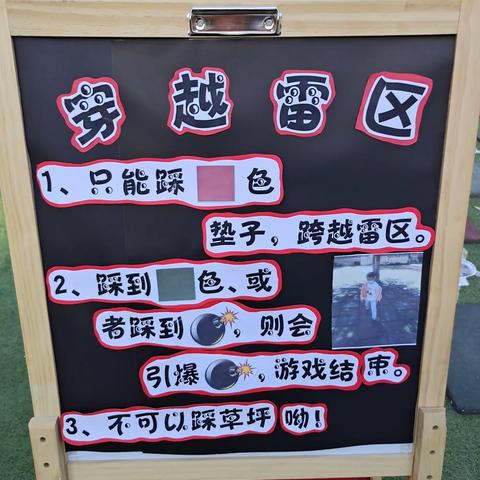 穿越雷区
1、只能踩 色
垫子，跨越雷区。
2、踩到 色、或
者踩到 ，则会
引爆 ，游戏结束。
3、不可以踩草坪 呦！